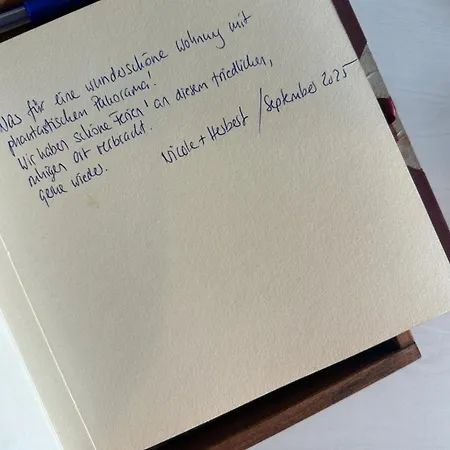 Was für eine wunderschöne Wohnung mit
phantastischem Panorama!
Wir haben schöne Ferien an diesem friedlichen,
ruhigen Ort verbracht.
Gerne wieder.
Nicole + Herbert / September 2025